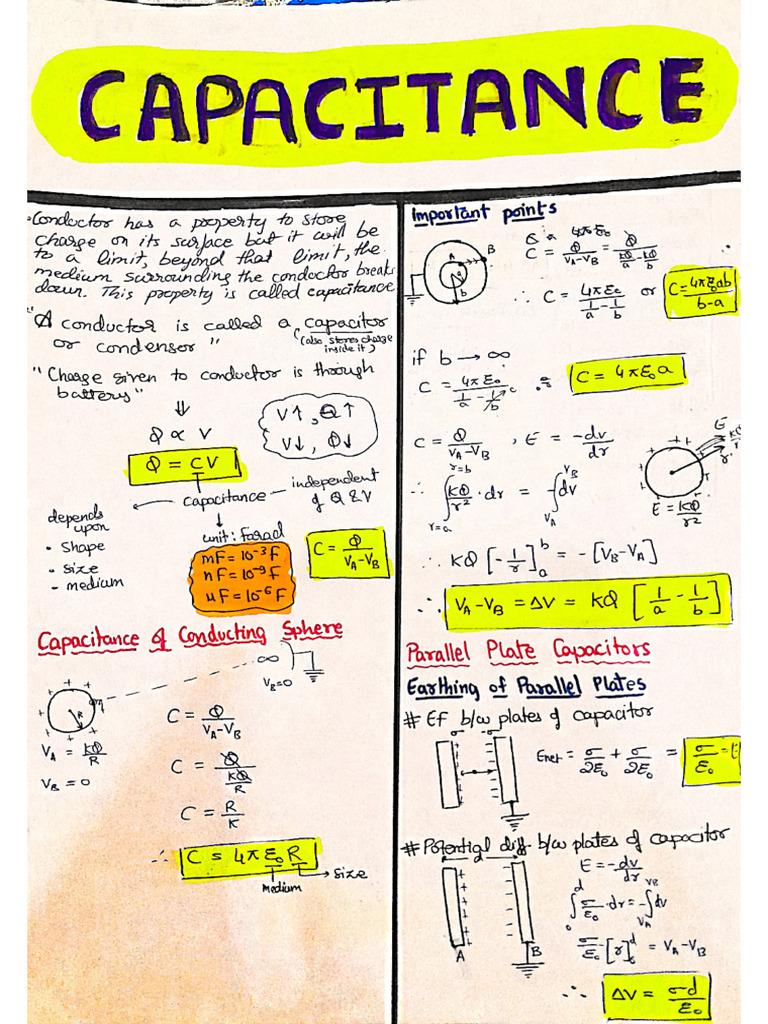 CAPACITANCE
Conductor has a property to store
charge on its surface but it will be
to a limit, beyond that limit, the
medium surrounding the conductor breaks
down. This property is called capacitance
"A conductor is called a capacitor
(also stores charge
or condensor"
inside it)
"Charge given to conductor is through
battery"
⇓
Q ∝ V
V↑, Q↑
V↓, Q↓
Q = CV
capacitance
independent
of Q & V
depends
upon
• Shape
• Size
- medium
unit: farad
mF = 10⁻³ F
nF = 10⁻⁹ F
μF = 10⁻⁶ F
C = Q/(V_A-V_B)
Capacitance of Conducting Sphere
∞
V_B=0
R
V_A = KQ/R
V_B = 0
C = Q/(V_A-V_B)
C = Q/(KQ/R)
C = R/K
∴ C = 4πε₀R
medium
size
Important points
A
B
b
4πε₀
C = Q/(V_A-V_B) = Q/(KQ/a - KQ/b)
∴ C = 4πε₀/(1/a - 1/b) or C = 4πε₀ab/(b-a)
if b → ∞
C = 4πε₀/(1/a - 1/b) ∴ C = 4πε₀a
C = Q/(V_A-V_B) , E = -dv/dr
∴ ∫_{r=a}^{r=b} KQ/r² · dr = -∫_{V_A}^{V_B} dv
E
E = KQ/r²
∴ KQ[-1/r]_a^b = -[V_B-V_A]
∴ V_A-V_B = ΔV = KQ[1/a - 1/b]
Parallel Plate Capacitors
Earthing of Parallel Plates
# EF b/w plates of capacitor
E_net = σ/2ε₀ + σ/2ε₀ = σ/ε₀ = E
# Potential diff b/w plates of capacitor
A
B
E = -dv/dr
∫_0^d σ/ε₀ · dr = -∫_{V_A}^{V_B} dv
σ/ε₀ [r]_0^d = V_A-V_B
∴ ΔV = σd/ε₀